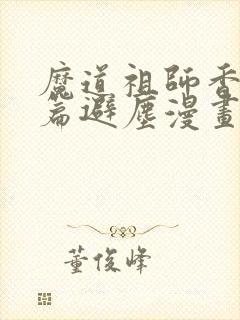 魔道祖師香
篇避塵漫畫
董俊峰